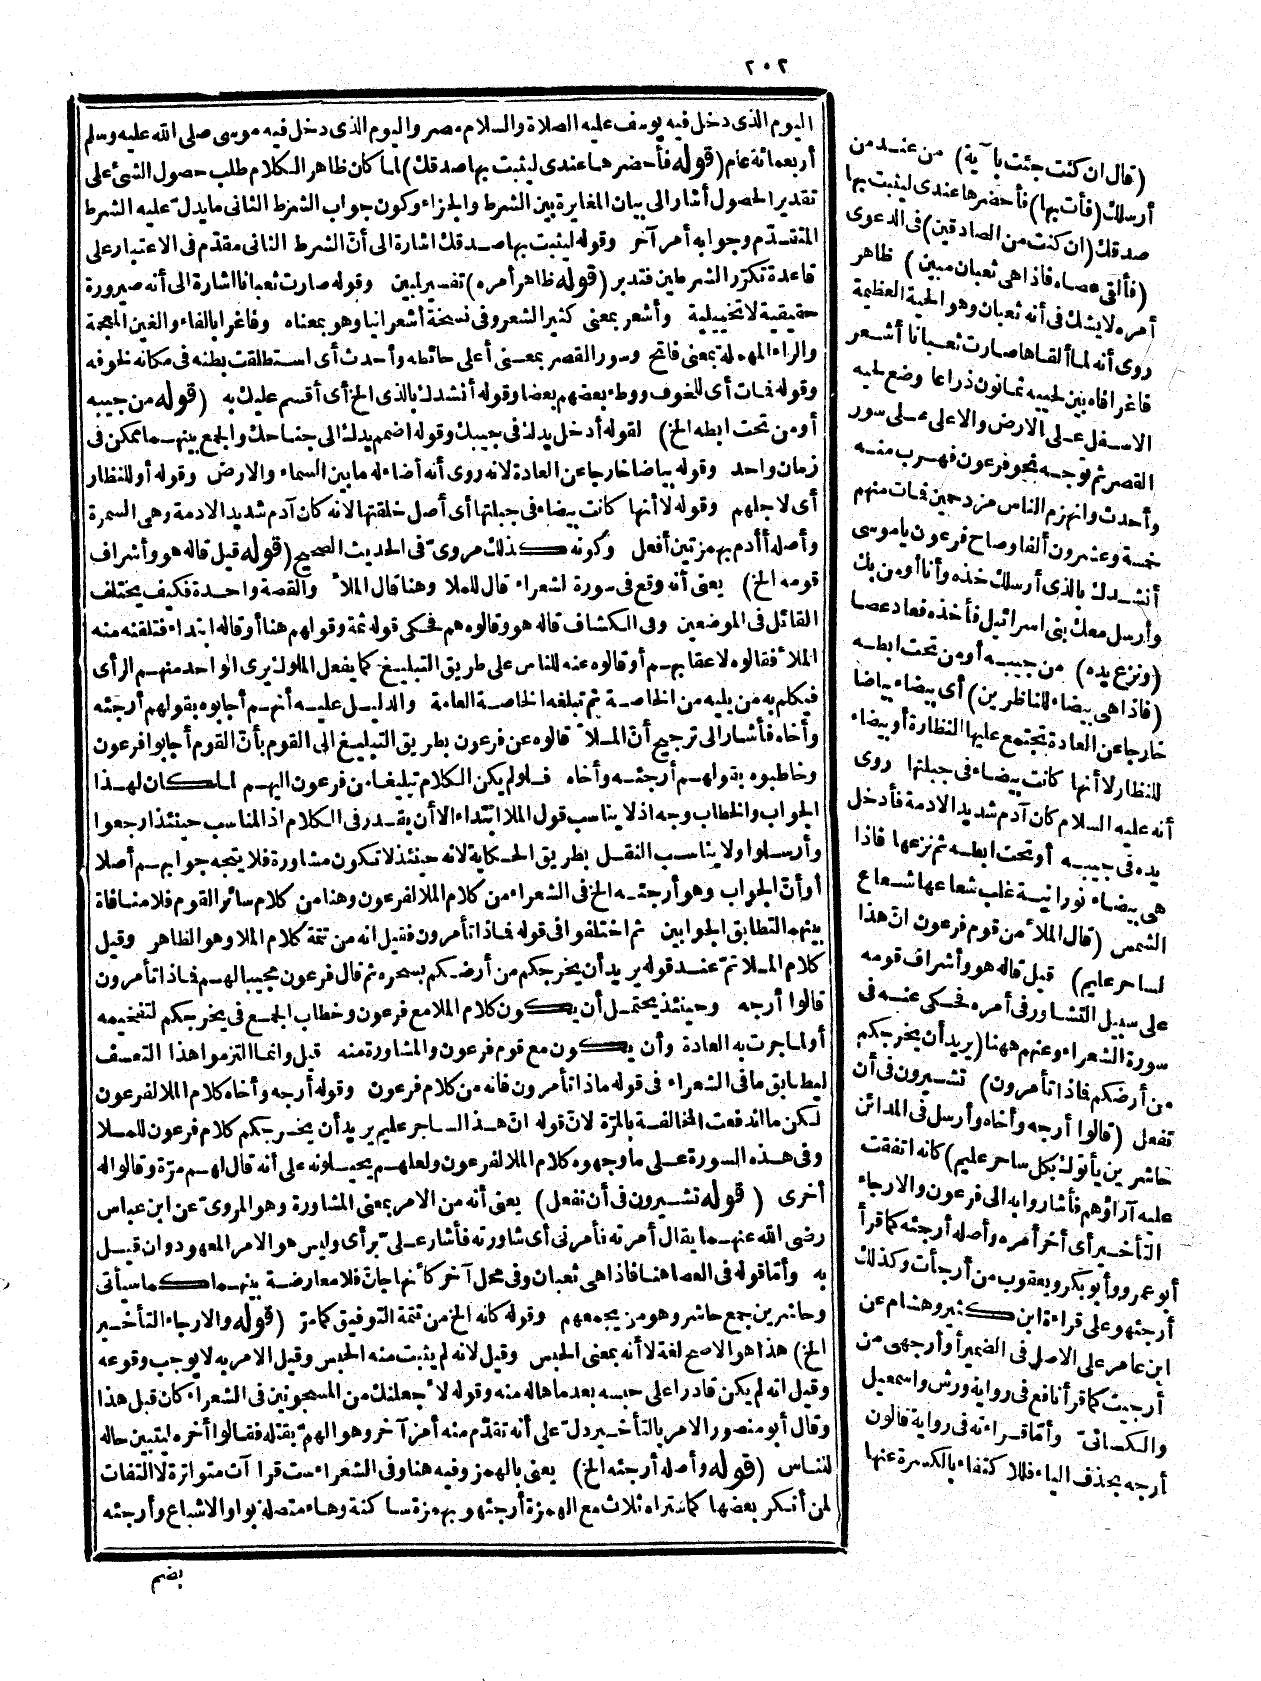 ٢٠٢
اليوم الذى دخل فيه يوسف عليه الصلاة والسلام مصر واليوم الذى دخل فيه موسى صلى الله عليه وسلم
أربعمائة عام (قوله فأحضرها عندى ليثبت بها صدقك) لما كان ظاهر الكلام طلب حصول الشئ على
تقدير الحصول أشار الى بيان المغايرة بين الشرط والجزاء وكون جواب الشرط الثانى ما يدل عليه الشرط
المتقدّم وجوابه أمر آخر وقوله ليثبت بها صدقك اشارة الى أنّ الشرط الثانى مقدّم فى الاعتبار على
قاعدة تكرّر الشرطين فتدبر (قوله ظاهر أمره) تفسير لمبين وقوله صارت ثعبانا اشارة الى أنه صيرورة
حقيقية لا تخييلية وأشعر بمعنى كثير الشعر وفى نسخة أشعرانيا وهو بمعناه وفاغرا بالفاء والغين المعجمة
والراء المهملة بمعنى فاتح وسور القصر بمعنى أعلى حائطه وأحدث أى استطلقت بطنه فى مكانه لخوفه
وقوله فمات أى للخوف ووطء بعضهم بعضا وقوله أنشدك بالذى الخ أى أقسم عليك به (قوله من جيبه
أو من تحت ابطه الخ) لقوله أدخل يدك فى جيبك وقوله اضمم يدك الى جناحك والجمع بينهما ممكن فى
زمان واحد وقوله بياضا خارجا عن العادة لانه روى أنه أضاء له ما بين السماء والارض وقوله أو للنظار
أى لاجلهم وقوله لا أنها كانت بيضاء فى جبلتها أى أصل خلقتها لانه كان آدم شديد الادمة وهى السمرة
وأصله أأدم بهمزتين أفعل وكونه كذلك مروىّ فى الحديث الصحيح (قوله قيل قاله هو وأشراف
قومه الخ) يعنى أنه وقع فى سورة الشعراء قال للملا وهنا قال الملأ والقصة واحدة فكيف يختلف
القائل فى الموضعين وفى الكشاف قاله هو وقالوه هم فحكى قوله ثمة وقولهم هنا أو قاله ابتداء فتلقنه منه
الملأ فقالوه لاعقابهم أو قالوه عنه للناس على طريق التبليغ كما يفعل الملوك يرى الواحد منهم الرأى
فيكلم به من يليه من الخاصة ثم تبلغه الخاصة العامة والدليل عليه أنهم أجابوه بقولهم أرجئه
وأخاه فأشار الى ترجيح أنّ الملأ قالوه عن فرعون بطريق التبليغ الى القوم بأنّ القوم أجابوا فرعون
وخاطبوه بقولهم أرجئه وأخاه فلو لم يكن الكلام تبليغا من فرعون اليهم لما كان لهذا
الجواب والخطاب وجه اذ لا يناسب قول الملا ابتداء الا أن يقدر فى الكلام اذ المناسب حينئذ ارجعوا
وأرسلوا ولا يناسب النقل بطريق الحكاية لانه حينئذ لا تكون مشاورة فلا يتجه جوابهم أصلا
أو أنّ الجواب وهو أرجئه الخ فى الشعراء من كلام الملا لفرعون وهنا من كلام سائر القوم فلا منافاة
بينهما لتطابق الجوابين ثم اختلفوا فى قوله فماذا تأمرون فقيل انه من تتمة كلام الملا وهو الظاهر وقيل
كلام الملا تمّ عند قوله يريد أن يخرجكم من أرضكم بسحره ثم قال فرعون مجيبا لهم فماذا تأمرون
قالوا أرجه وحينئذ يحتمل أن يكون كلام الملا مع فرعون وخطاب الجمع فى يخرجكم لتفخيمه
أو لما جرت به العادة وأن يكون مع قوم فرعون والمشاورة منه قيل وانما التزموا هذا التعسف
ليطابق ما فى الشعراء فى قوله ماذا تأمرون فانه من كلام فرعون وقوله أرجه وأخاه كلام الملا لفرعون
لكن ما اندفعت المخالفة بالمرّة لانّ قوله انّ هذا الساحر عليم يريد أن يخرجكم كلام فرعون للملا
وفى هذه السورة على ما وجهوه كلام الملا لفرعون ولعلهم يحيلونه على أنه قال لهم مرّة وقالوا له
أخرى (قوله تشيرون فى أن نفعل) يعنى أنه من الامر بمعنى المشاورة وهو المروىّ عن ابن عباس
رضى الله عنهما يقال أمرته فأمرنى أى شاورته فأشار علىّ برأى وليس هو الامر المعهود وان قيل
به وأمّا قوله فى العصا هنا فاذا هى ثعبان وفى محل آخر كأنها جانّ فلا معارضة بينهما كما سيأتى
وحاشرين جمع حاشر وهو من يجمعهم وقوله كانه الخ من تتمة التوفيق كما مرّ (قوله والارجاء التأخير
الخ) هذا هو الاصح لغة لا أنه بمعنى الحبس وقيل لانه لم يثبت منه الحبس وقيل الامر به لا يوجب وقوعه
وقيل انه لم يكن قادرا على حبسه بعد ما هاله منه وقوله لأجعلنك من المسجونين فى الشعراء كان قبل هذا
وقال أبو منصور الامر بالتأخير دلّ على أنه تقدّم منه أمر آخر وهو الهمّ بقتله فقالوا أخره ليتبين حاله
للناس (قوله وأصله أرجئه الخ) يعنى بالهمز وفيه هنا وفى الشعراء ست قراآت متواترة لا التفات
لمن أنكر بعضها كما ستراه ثلاث مع الهمزة أرجئهو بهمزة ساكنة وهاء متصلة بواو الاشباع وأرجئه
بضم
(قال ان كنت جئت بآية) من عند من
أرسلك (فأت بها) فأحضرها عندى ليثبت بها
صدقك (ان كنت من الصادقين) فى الدعوى
(فألقى عصاه فاذا هى ثعبان مبين) ظاهر
أمره لا يشك فى أنه ثعبان وهو الحية العظيمة
روى أنه لما ألقاها صارت ثعبانا أشعر
فاغرا فاه بين لحييه ثمانون ذراعا وضع لحيه
الاسفل على الارض والاعلى على سور
القصر ثم توجه نحو فرعون فهرب منه
وأحدث وانهزم الناس مزدحمين فمات منهم
خمسة وعشرون ألفا وصاح فرعون يا موسى
أنشدك بالذى أرسلك خذه وأنا أومن بك
وأرسل معك بنى اسرائيل فأخذه فعاد عصا
(ونزع يده) من جيبه أو من تحت ابطه
(فاذا هى بيضاء للناظرين) أى بيضاء بياضا
خارجا عن العادة يجتمع عليها النظارة أو بيضاء
للنظار لا أنها كانت بيضاء فى جبلتها روى
أنه عليه السلام كان آدم شديد الادمة فأدخل
يده فى جيبه أو تحت ابطه ثم نزعها فاذا
هى بيضاء نورانية غلب شعاعها شعاع
الشمس (قال الملأ من قوم فرعون انّ هذا
لساحر عليم) قيل قاله هو وأشراف قومه
على سبيل التشاور فى أمره فحكى عنه فى
سورة الشعراء وعنهم ههنا (يريد أن يخرجكم
من أرضكم فماذا تأمرون) تشيرون فى أن
نفعل (قالوا أرجه وأخاه وأرسل فى المدائن
حاشرين يأتوك بكل ساحر عليم) كانه اتفقت
عليه آراؤهم فأشاروا به الى فرعون والارجاء
التأخير أى أخر أمره وأصله أرجئه كما قرأ
أبو عمرو وأبو بكر ويعقوب من أرجأت وكذلك
أرجئهو على قراءة ابن كثير وهشام عن
ابن عامر على الاصل فى الضمير أو أرجهى من
أرجيت كما قرأ نافع فى رواية ورش واسمعيل
والكسائىّ وأمّا قراءته فى رواية قالون
أرجه بحذف الياء فللاكتفاء بالكسرة عنها